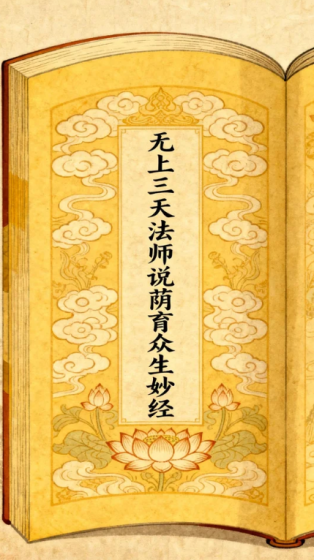 无上三天法师说荫育众生妙经